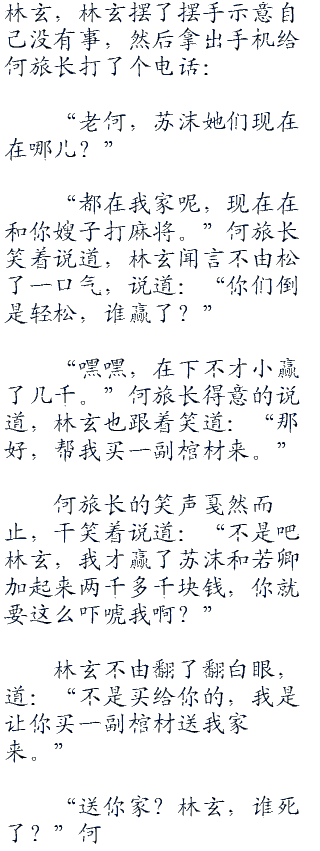 林玄，林玄摆了摆手示意自
己没有事，然后拿出手机给
何旅长打了个电话：
“老何，苏沫她们现在
在哪儿？”
“都在我家呢，现在在
和你嫂子打麻将。”何旅长
笑着说道，林玄闻言不由松
了一口气，说道：“你们倒
是轻松，谁赢了？”
“嘿嘿，在下不才小赢
了几千。”何旅长得意的说
道，林玄也跟着笑道：“那
好，帮我买一副棺材来。”
何旅长的笑声戛然而
止，干笑着说道：“不是吧
林玄，我才赢了苏沫和若卿
加起来两千多千块钱，你就
要这么吓唬我啊？”
林玄不由翻了翻白眼，
道：“不是买给你的，我是
让你买一副棺材送我家
来。”
“送你家？林玄，谁死
了？”何